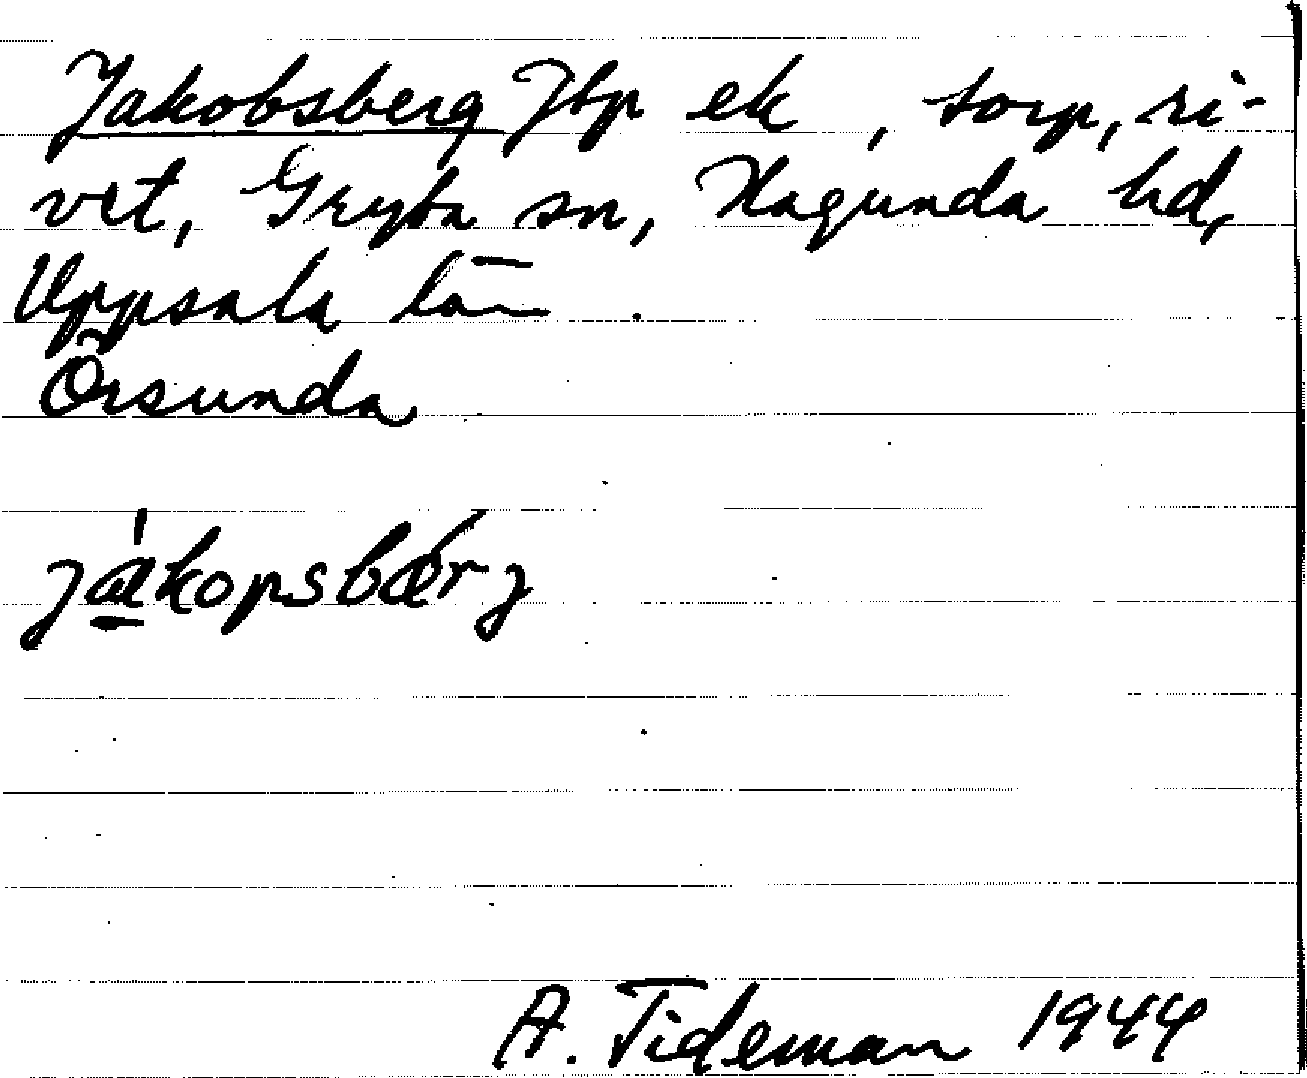 Jakobsberg Jbp ek, torp, ri-
vet, Gryta sn, Hagunda hd,
Uppsala län.
Örsunda
jákopsbǽrj
A. Tideman 1944